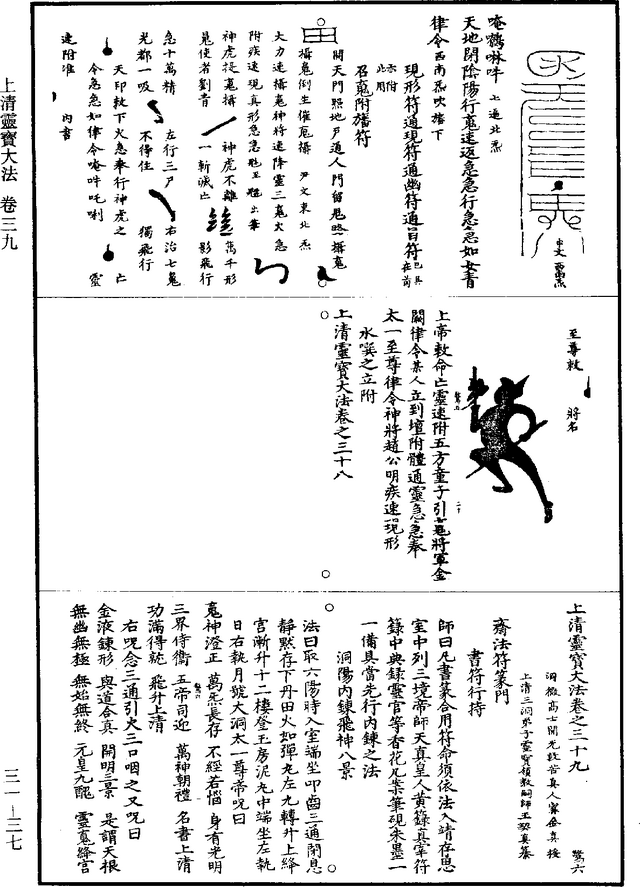 唵鶴啉吽 上通北炁
天地閉陰陽行䰟速返急急行急急如女青
律令西南炁吹旛下
現形符通現符通幽符通旨符已具在前
亦附此用
召䰟附旛符
開天門照地戶通人門留鬼路攝䰟
攝䰟倒生催䰟攝 尹文東北炁
大力速攝䰟神將速降靈三䰟火急
附疾速現真形急急
神虎捉䰟攝 神虎不離 萬千形
䰟使者劉青 一斬滅亡 影飛行
急十萬精 左行三戶 右治七䰟
光都一吸 不得住 獨飛行
天印敕下火急奉行神虎之 亡
令急急如律令唵吽吒唎 靈
速附准 內書
至尊敕 將名
上帝敕命亡靈速附五方童子引䰟將軍金
闕律令某人立到壇附體通靈急急奉
太一至尊律令神將趙公明疾速現形
水噀之立附
上清靈寶大法卷之三十八
上清靈寶大法卷之三十九 驚六
洞微高士開光救苦真人甯全真授
上清三洞弟子靈寶領教嗣師王契真纂
齋法符篆門
書符行持
師曰凡書篆合用符命須依法入靖存思
室中列三境帝師天真皇人黃籙真宰符
籙中典錄靈官等香花几案筆硯朱墨一
一備具當先行內鍊之法
洞陽內鍊飛神八景
法曰取六陽時入室端坐叩齒三通閉息
靜默存下丹田火如彈丸左九轉升上絳
宮漸升十二樓登玉房泥丸中端坐左執
日右執月號大洞太一尊帝呪曰
䰟神澄正 萬炁長存 不經苦惱 身有光明
三界侍衛 五帝司迎 萬神朝禮 名書上清
功滿得就 飛升上清
右呪念三通引火三口咽之又呪曰
金液鍊形 與道合真 開明三景 是謂天根
無幽無極 無始無終 元皇九醖 靈䰟絳宮
上清靈寶大法 卷三九
三一—三七